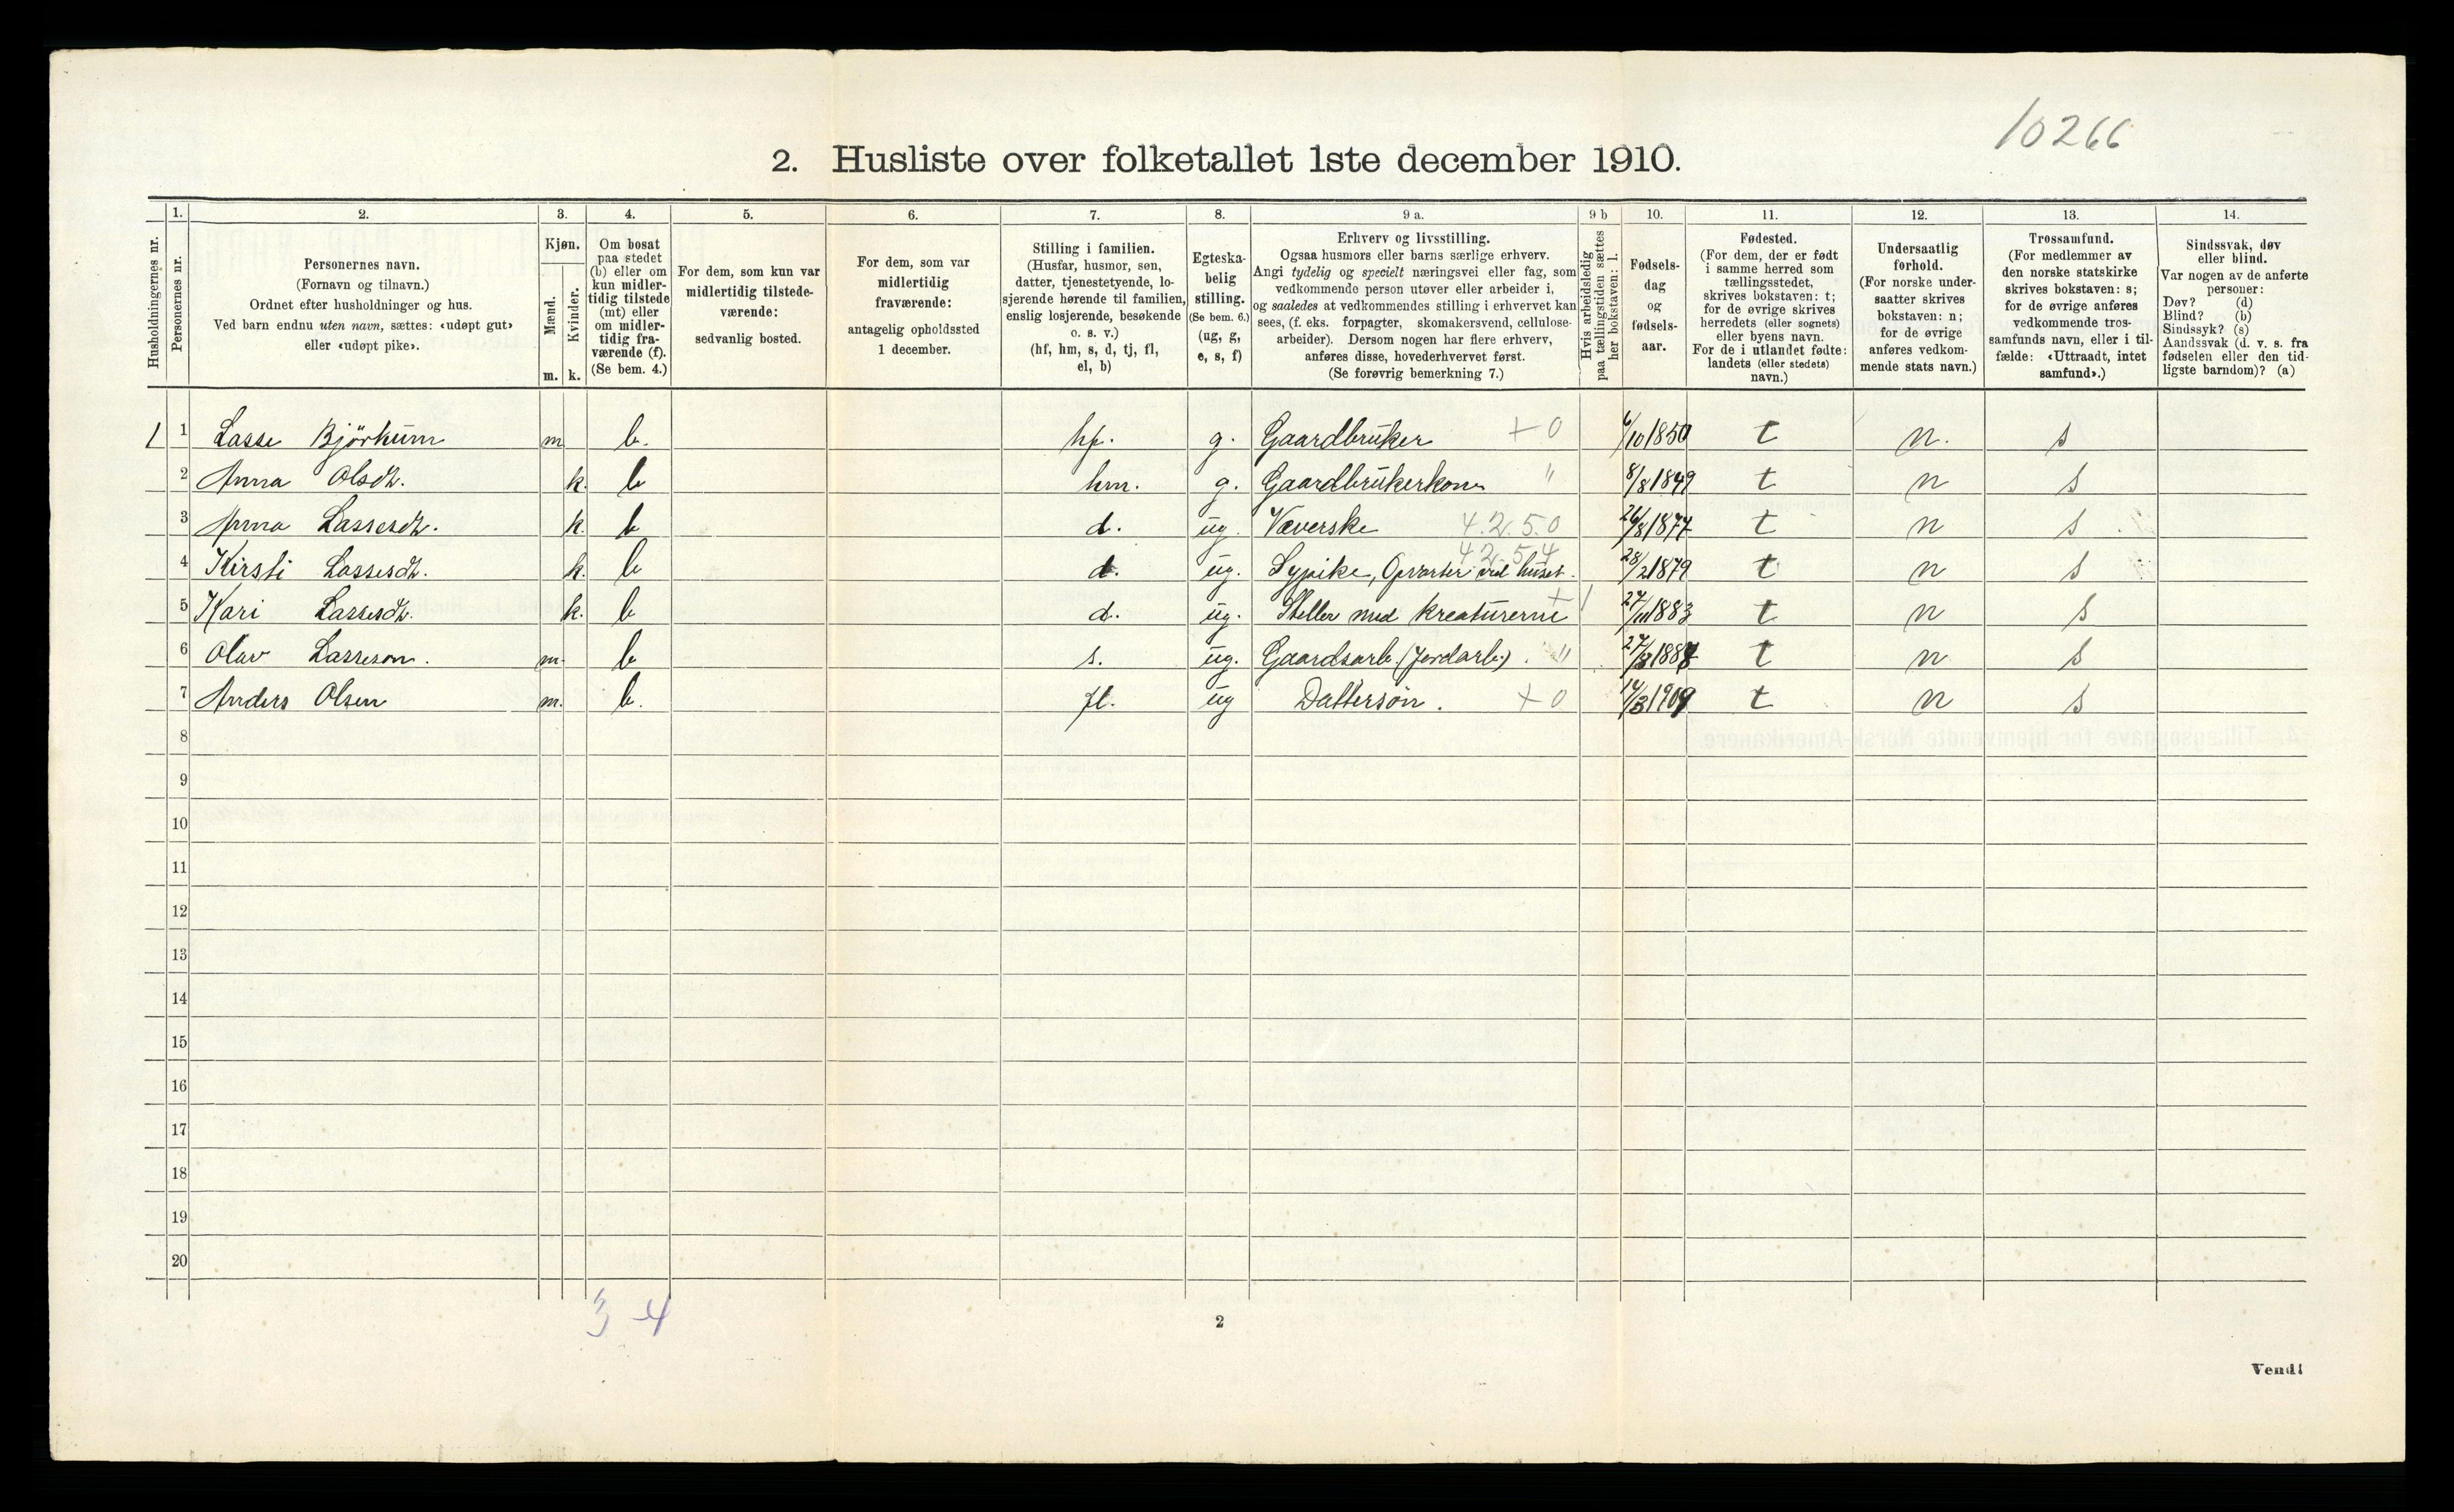 10266
2. Husliste over folketallet 1ste december 1910.
Husholdningernes nr.
1.
Personernes nr.
2.
Personernes navn.
(Fornavn og tilnavn.)
Ordnet efter husholdninger og hus.
Ved barn endnu uten navn, sættes: «udøpt gut»
eller «udøpt pike».
3.
Kjøn.
Mænd.
Kvinder.
m. k.
4.
Om bosat
paa stedet
(b) eller om
kun midler-
tidig tilstede
(mt) eller
om midler-
tidig fra-
værende (f).
(Se bem. 4.)
5.
For dem, som kun var
midlertidig tilstede-
værende:
sedvanlig bosted.
6.
For dem, som var
midlertidig
fraværende:
antagelig opholdssted
1 december.
7.
Stilling i familien.
(Husfar, husmor, søn,
datter, tjenestetyende, lo-
sjerende hørende til familien,
enslig losjerende, besøkende
o. s. v.)
(hf, hm, s, d, tj, fl,
el, b)
8.
Egteska-
belig
stilling.
(Se bem. 6.)
(ug, g,
e, s, f)
9 a.
Erhverv og livsstilling.
Ogsaa husmors eller barns særlige erhverv.
Angi tydelig og specielt næringsvei eller fag, som
vedkommende person utøver eller arbeider i,
og saaledes at vedkommendes stilling i erhvervet kan
sees, (f. eks. forpagter, skomakersvend, cellulose-
arbeider). Dersom nogen har flere erhverv,
anføres disse, hovederhvervet først.
(Se forøvrig bemerkning 7.)
9 b
Hvis arbeidsledig
paa tællingstiden sættes
her bokstaven: l.
10.
Fødsels-
dag
og
fødsels-
aar.
11.
Fødested.
(For dem, der er født
i samme herred som
tællingsstedet,
skrives bokstaven: t;
for de øvrige skrives
herredets (eller sognets)
eller byens navn.
For de i utlandet fødte:
landets (eller stedets)
navn.)
12.
Undersaatlig
forhold.
(For norske under-
saatter skrives
bokstaven: n;
for de øvrige
anføres vedkom-
mende stats navn.)
13.
Trossamfund.
(For medlemmer av
den norske statskirke
skrives bokstaven: s;
for de øvrige anføres
vedkommende tros-
samfunds navn, eller i til-
fælde: «Uttraadt, intet
samfund».)
14.
Sindssvak, døv
eller blind.
Var nogen av de anførte
personer:
Døv? (d)
Blind? (b)
Sindssyk? (s)
Aandssvak (d. v. s. fra
fødselen eller den tid-
ligste barndom)? (a)
1 1 Lasse Björkum m b. hf. g. Gaardbruker +0 6/10 1850 t n. s
2 Anna Olsdt. k. b hm. g. Gaardbrukerkone " 8/8 1849 t n s
3 Anna Lassesdt. k. b d. ug. Væverske 4.2.5.0 26/8 1877 t n s
4 Kirsti Lassesdt. k. b d. ug. Sypike, Opvarter ved huset. 42.54 28/2 1879 t n s
5 Kari Lassesdt. k. b d. ug. Steller med kreaturerne + 1883 t n s
6 Olav Lasseson. m. b s. ug. Gaardsarb. (Jordarb.). " t n s
7 Anders Olsen m. b. fl. ug Dattersön. +0 14/3 1909 t n s
8
9
10
11
12
13
14
15
16
17
18
19
20
3 4
2
Vend!